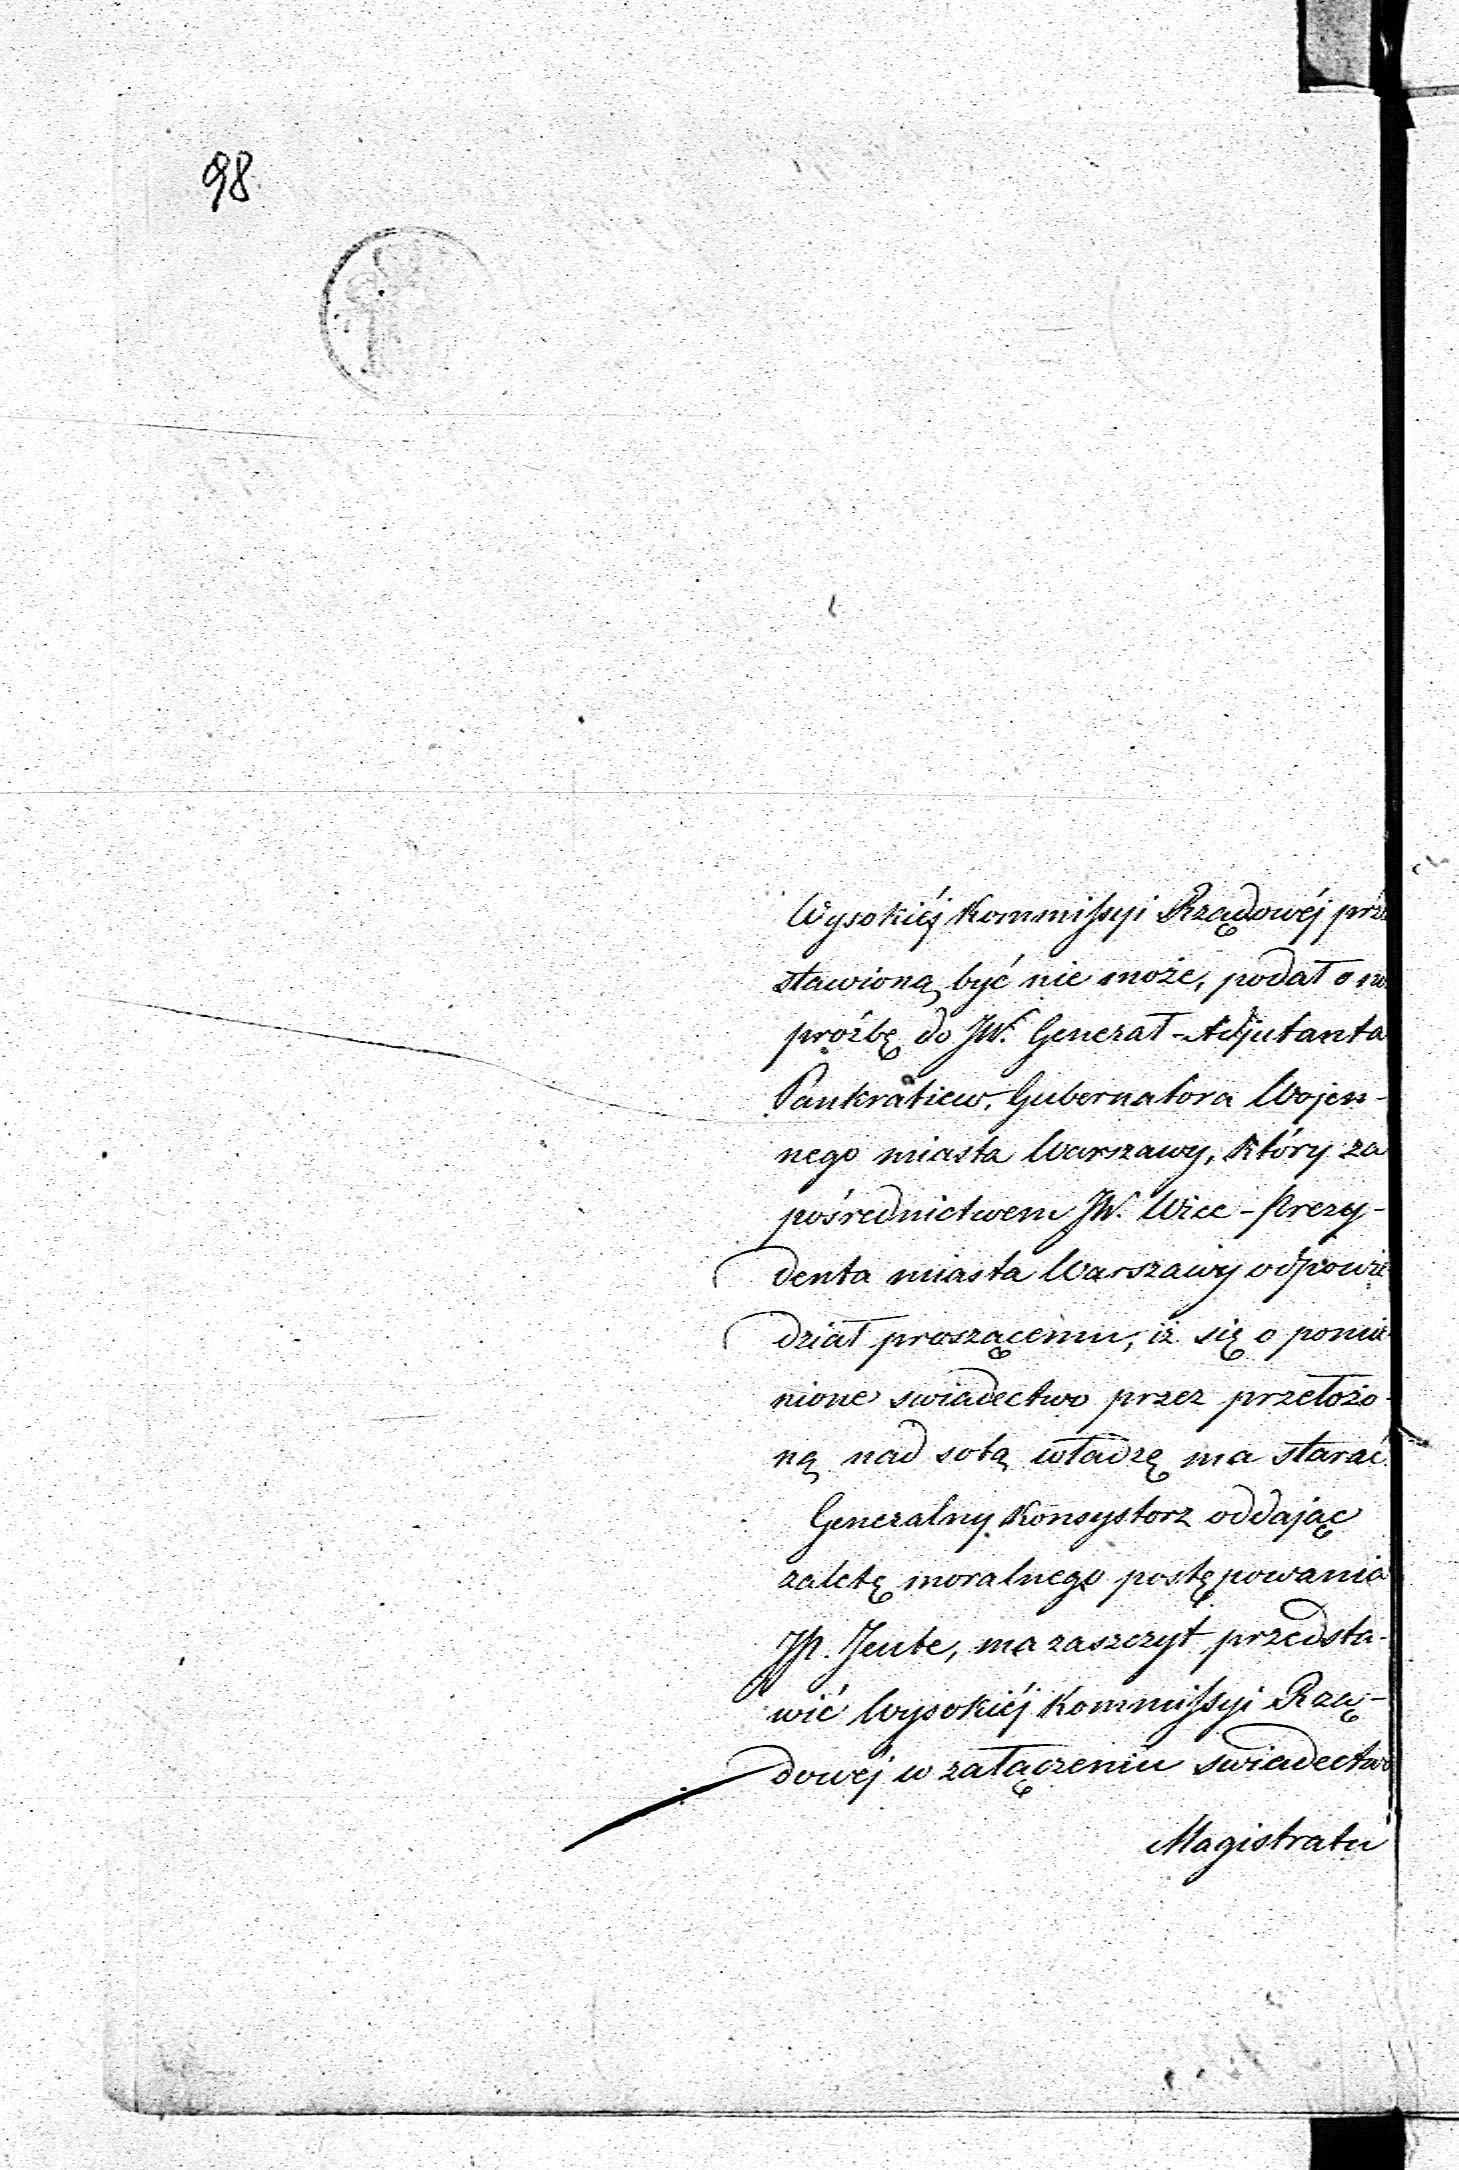 98
Wysokiéj Kommissyi Rządowéj prze
stawioną być nie może, podał o
proźbę do JW. Generał-Adjutanta
Pankratiew, Gubernatora Wojen-
nego miasta Warszawy, który za
pośrednictwem JW. Wice-Prezy-
denta miasta Warszawy odpowie
dział proszącemu, iż się o pomie
nione swiadectwo przez przełożo-
ną nad sobą władzę ma starać.
Generalny Konsystorz oddając
zaletę moralnego postępowania
JP. Jeute, ma zaszczyt przedsta-
wić Wysokiéj Kommissyi Rzą-
dowéj w załączeniu swiadectwo
Magistratu